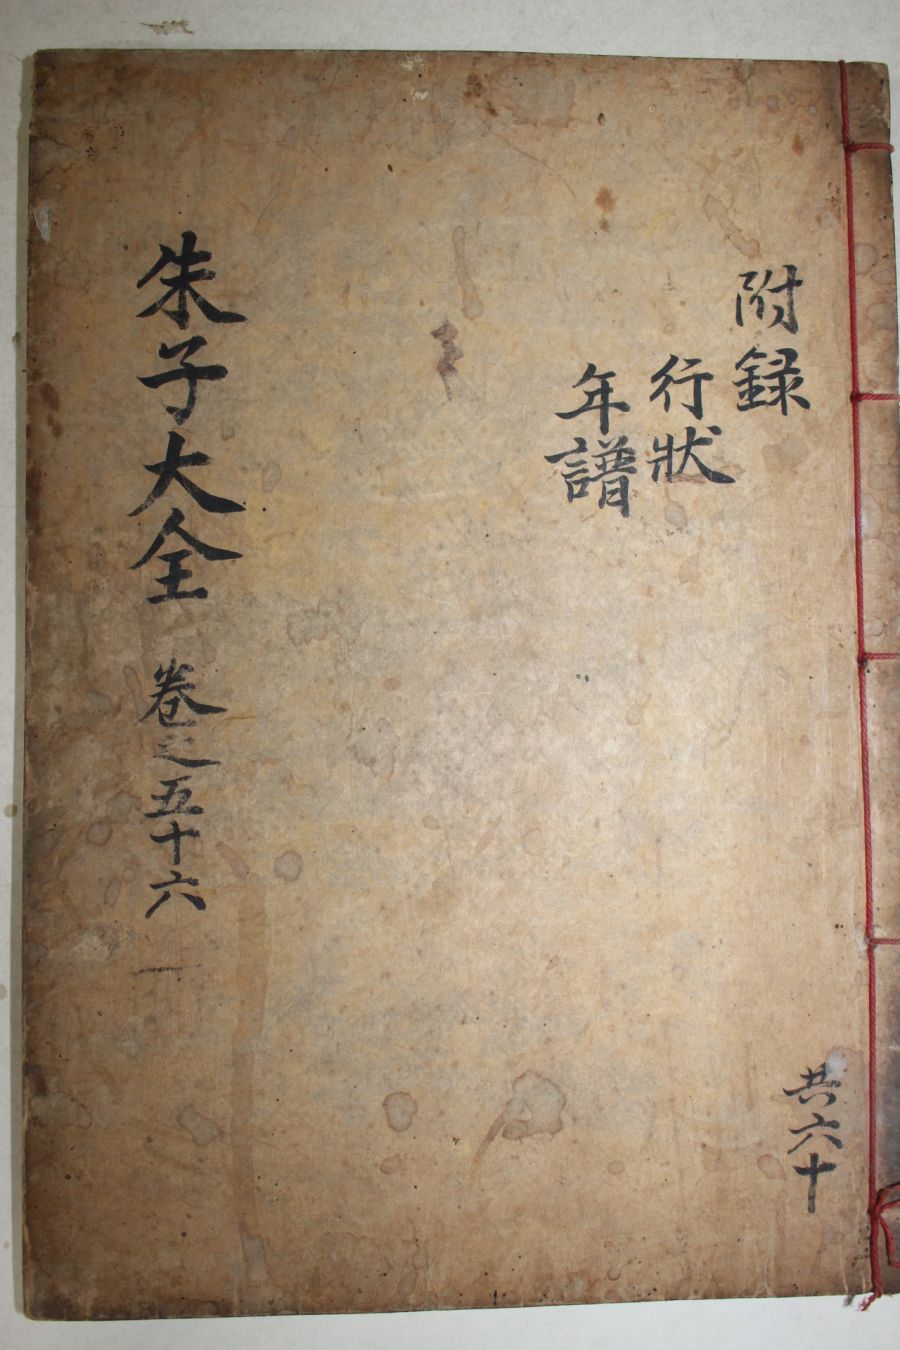 附錄
行狀
年譜
朱子大全 卷之五十六
共六十